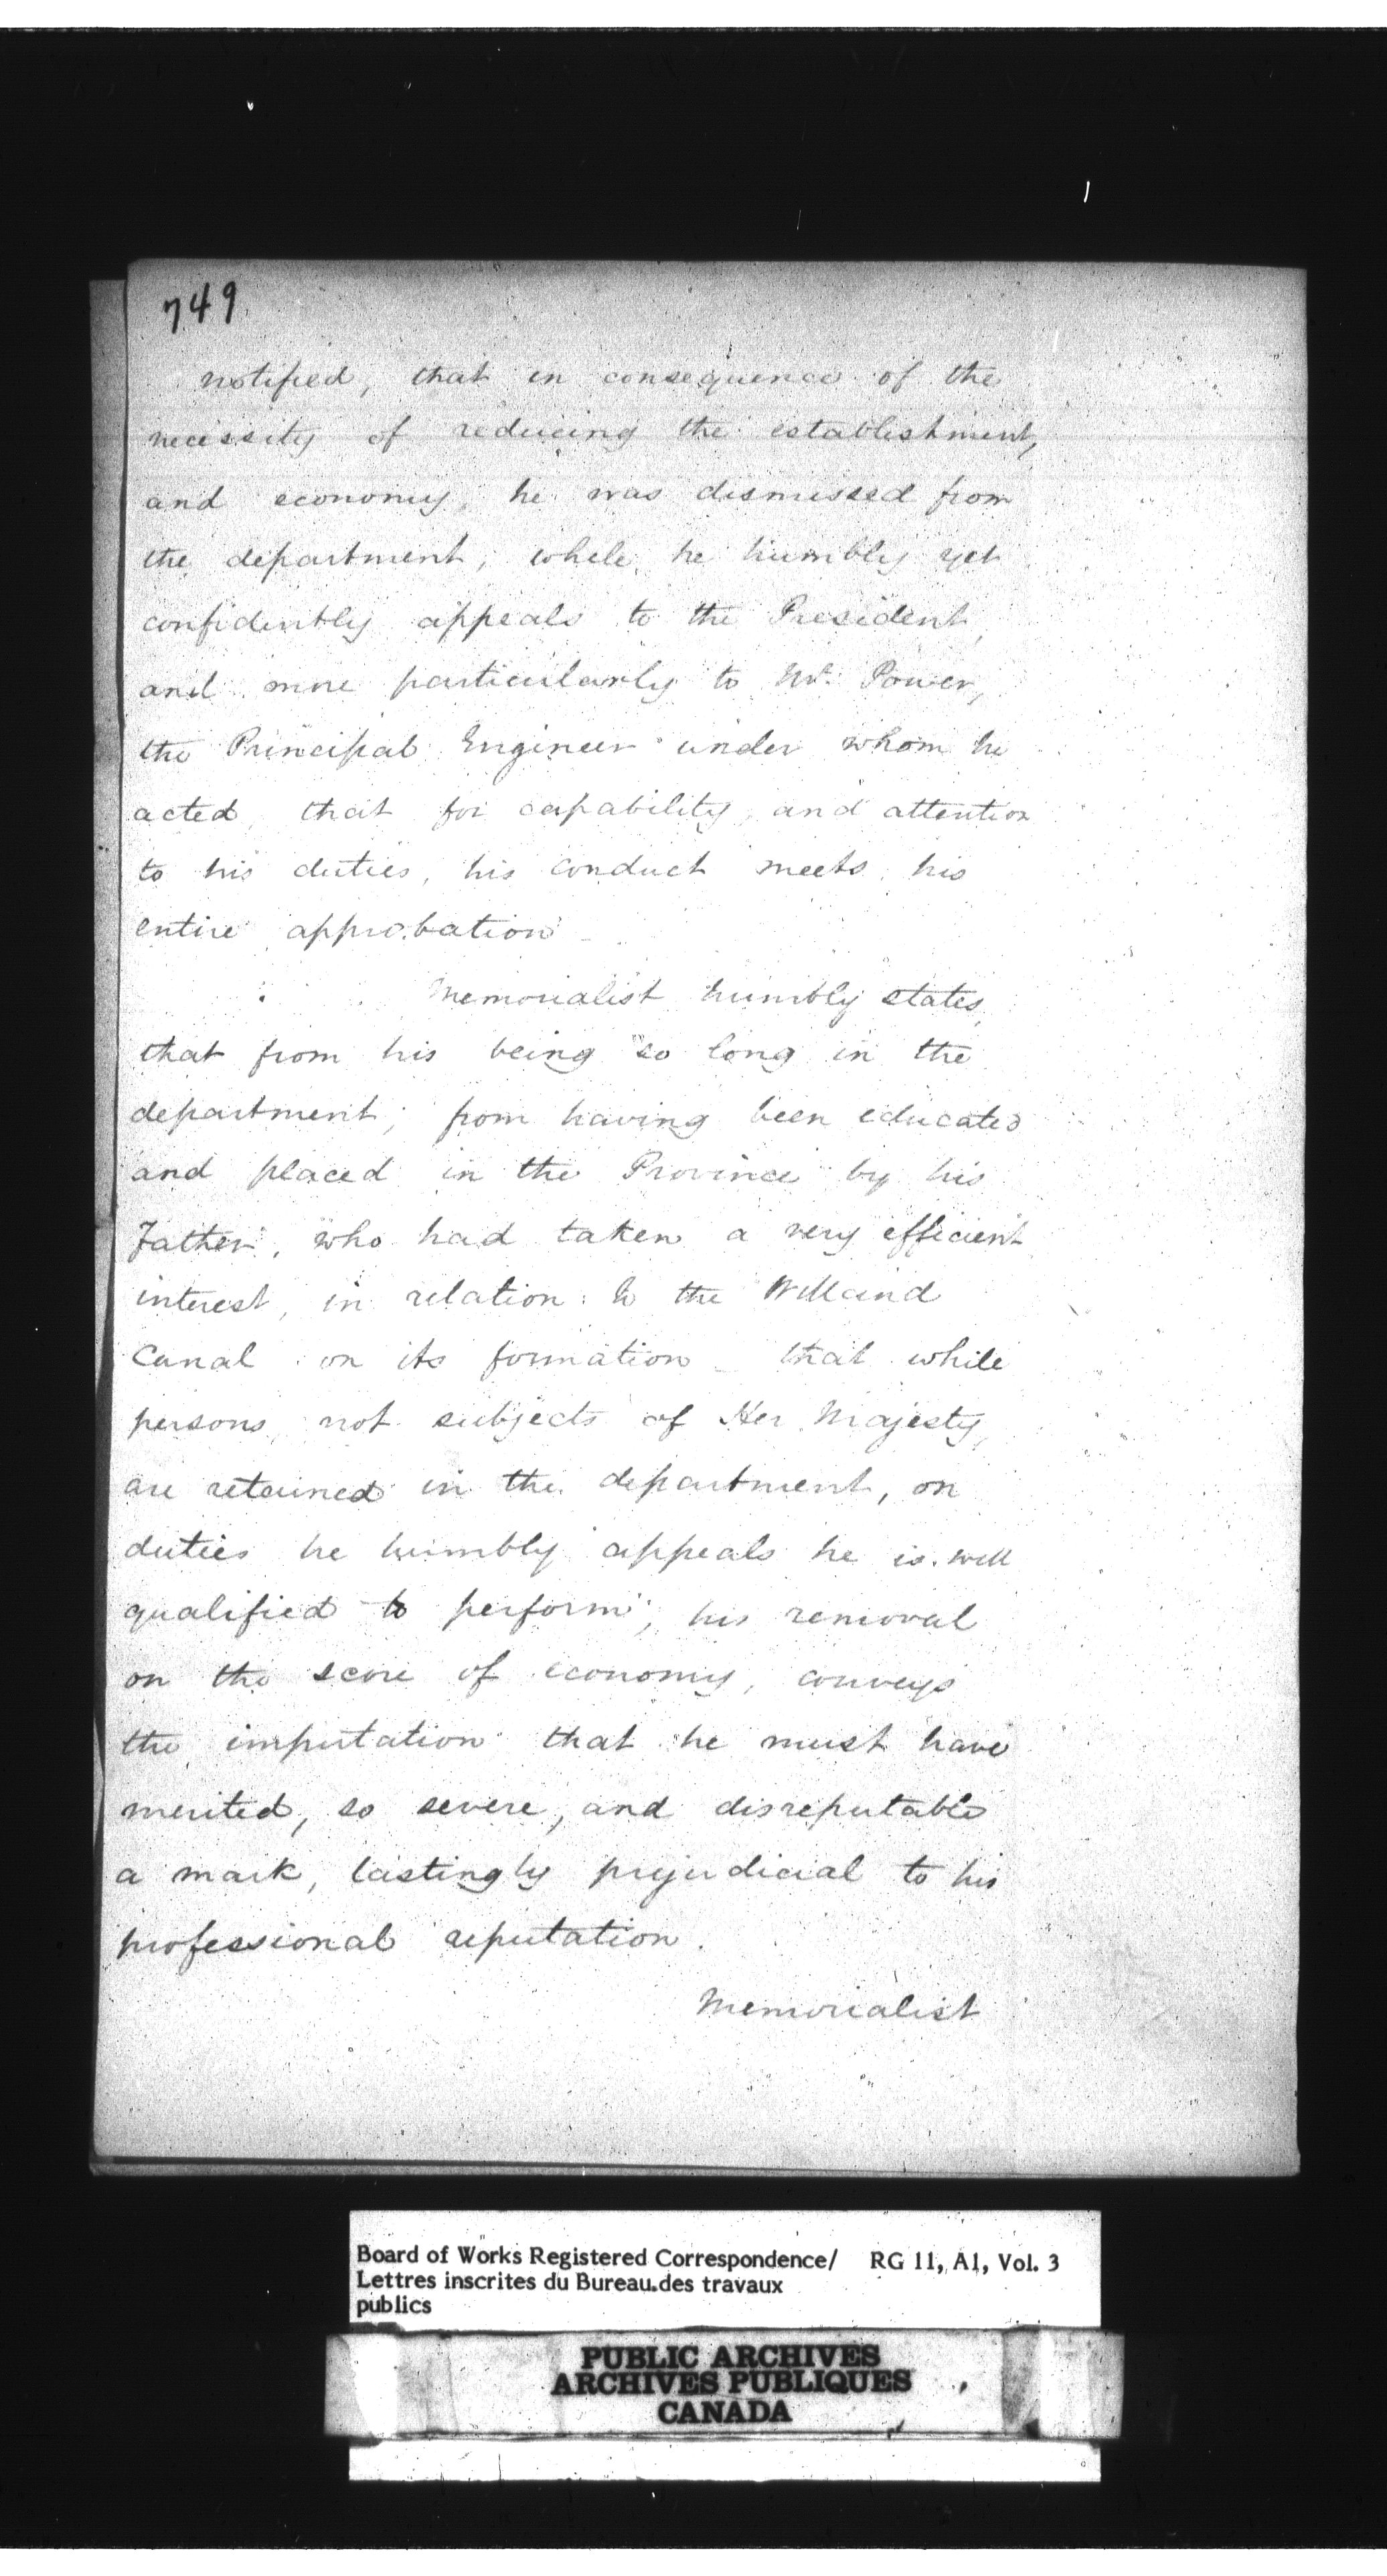 749
notified, that in consequence of the
necessity of reducing the establishment,
and economy, he was dismissed from
the department, while he humbly yet
confidently appeals to the President,
and more particularly to Mr. Power,
the Principal Engineer under whom he
acted, that for capability, and attention
to his duties, his conduct meets his
entire approbation
Memorialist humbly states,
that from his being so long in the
department, from having been educated
and placed in the Province by his
Father, who had taken a very efficient
interest, in relation to the Welland
Canal on its formation - that while
persons, not subjects of Her Majesty,
are retained in the department, on
duties he humbly appeals he is well
qualified to perform, his removal
on the score of economy, conveys
the imputation that he must have
merited, so severe, and disreputable
a mark, lastingly prejudicial to his
professional reputation.
Memorialist
Board of Works Registered Correspondence/ RG 11, A1, Vol. 3
Lettres inscrites du Bureau des travaux
publics
PUBLIC ARCHIVES
ARCHIVES PUBLIQUES
CANADA